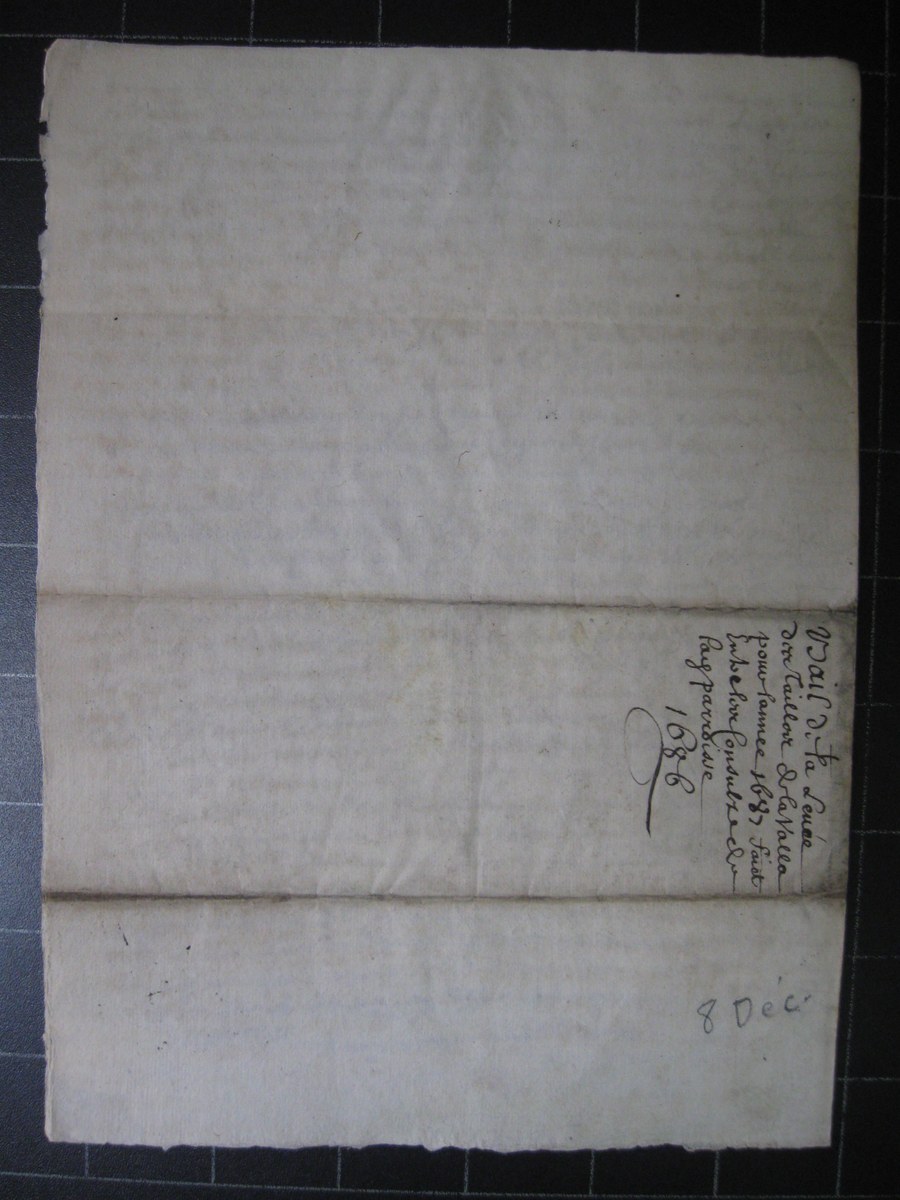 Bail de la Leuée
des Tailles de la Valla
pour lannee 1687 faict
Entre les Consulz de
1686
8 Déc